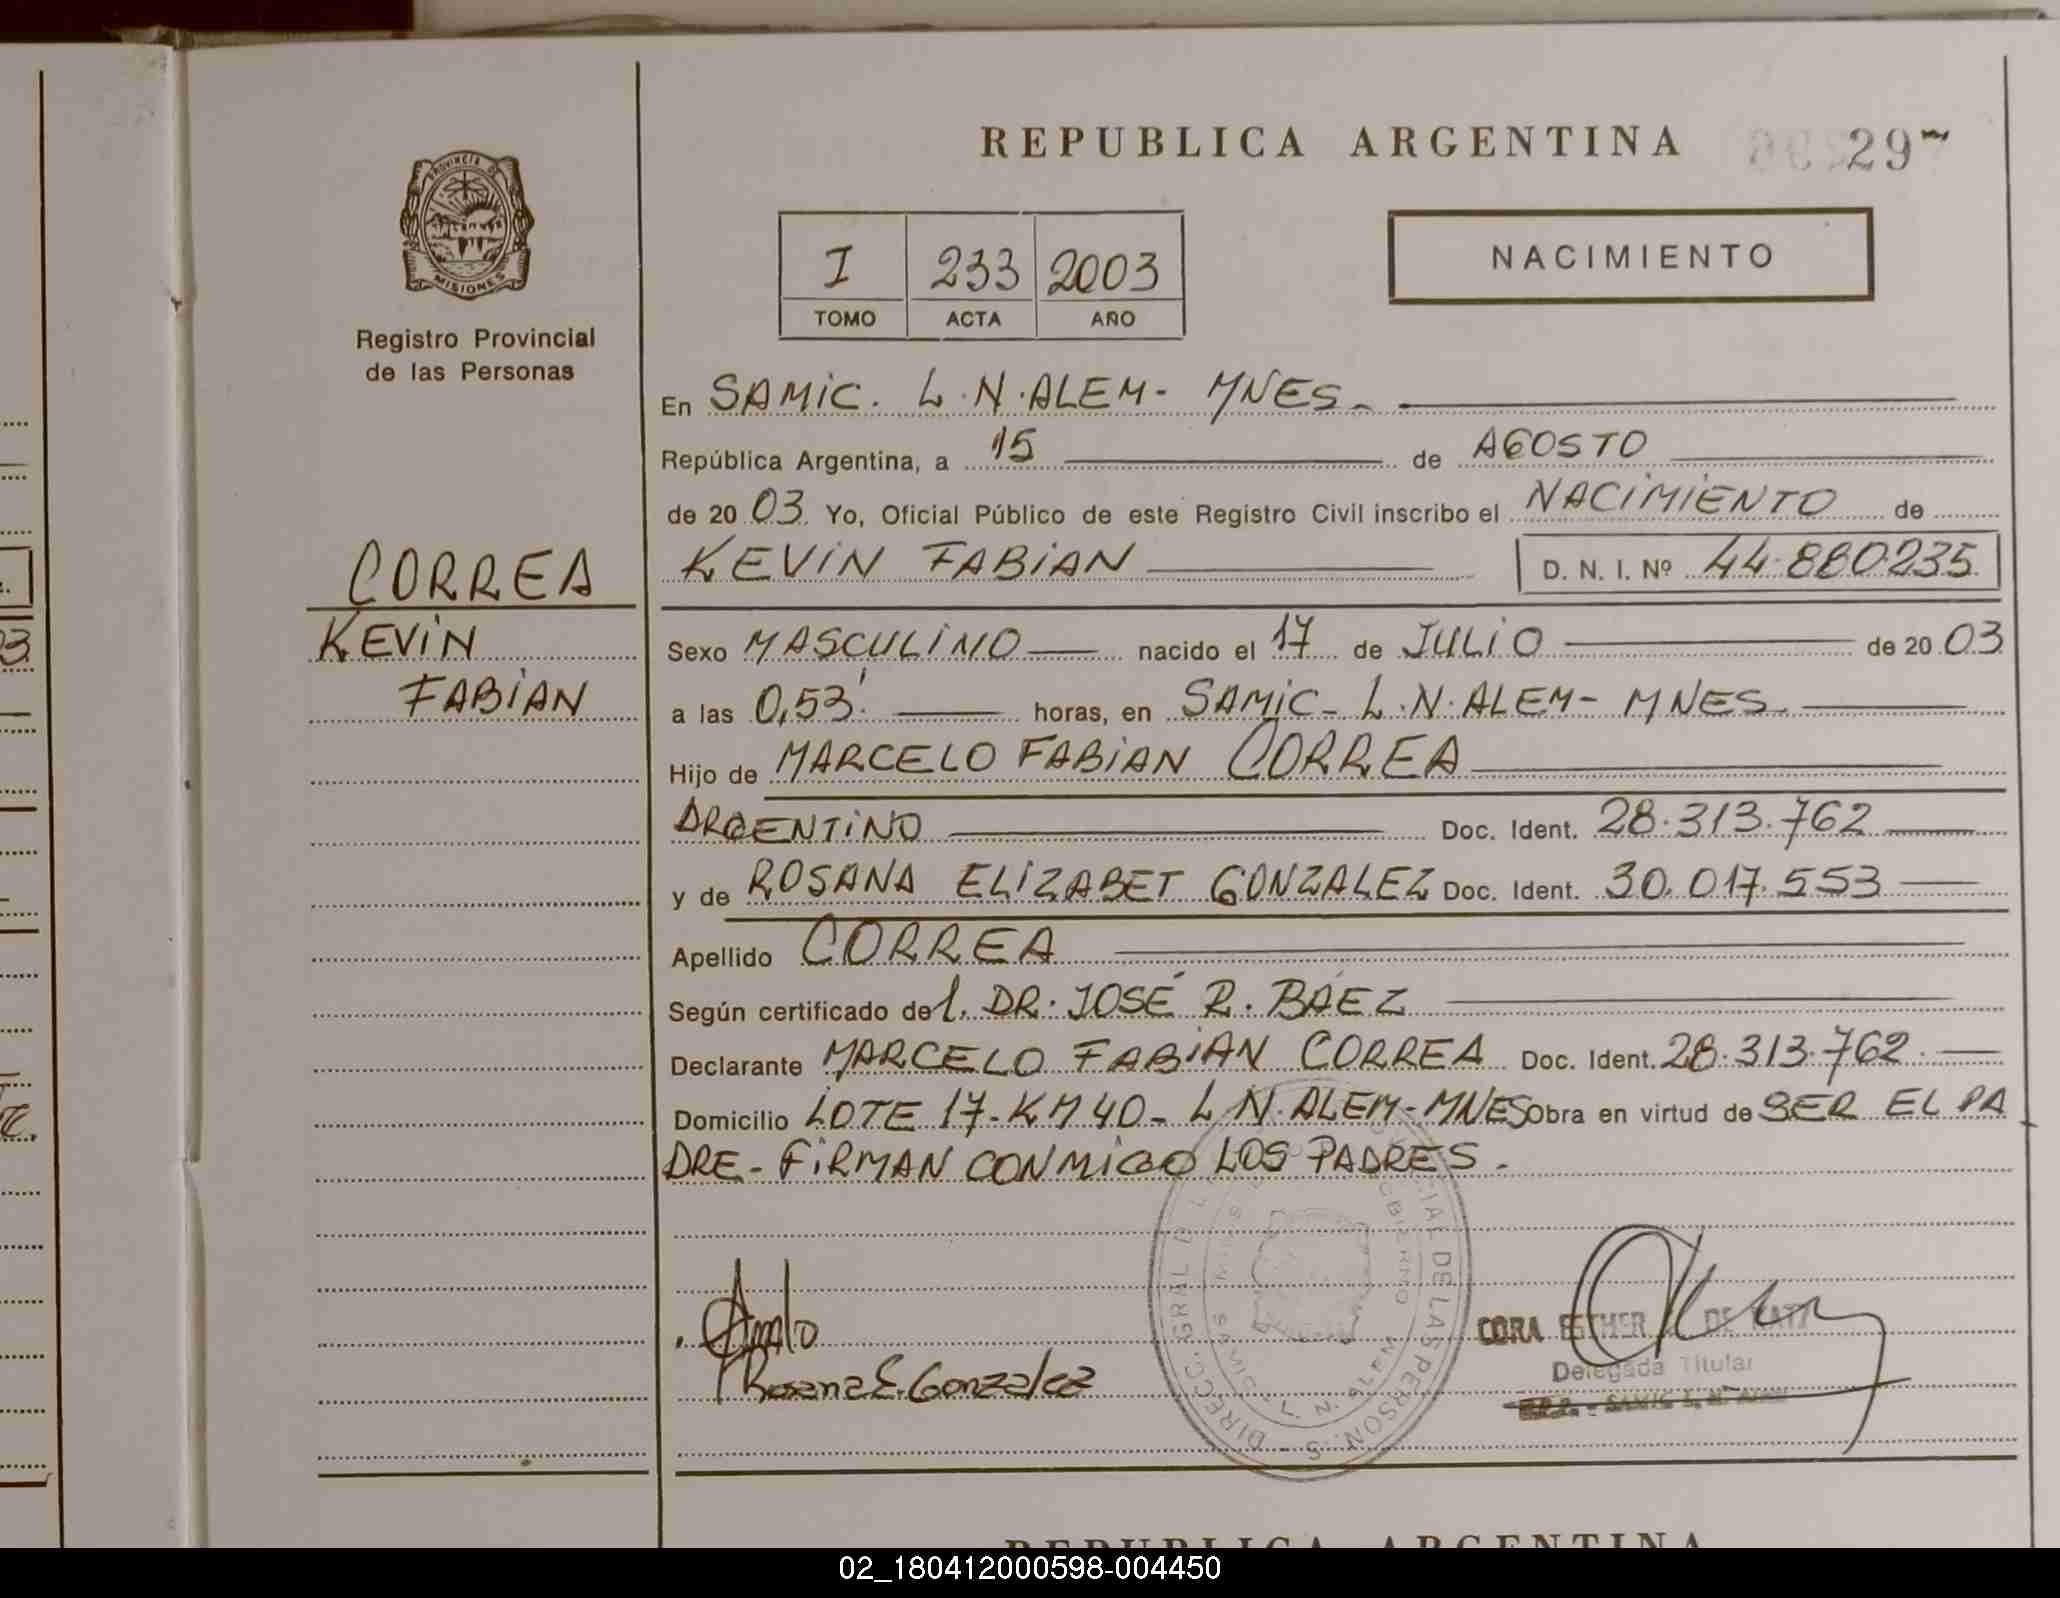 REPUBLICA ARGENTINA
29
PROVINCIA DE
MISIONES
Registro Provincial
de las Personas
I 233 2003
TOMO ACTA AÑO
NACIMIENTO
En SAMIC. L.N.ALEM- MNES.
República Argentina, a 15 de AGOSTO
de 2003 Yo, Oficial Público de este Registro Civil inscribo el NACIMIENTO de
KEVIN FABIAN D. N. I. Nº 44.880.235
CORREA
KEVIN
FABIAN
Sexo MASCULINO nacido el 17 de JULIO de 2003
a las 0,53' horas, en SAMIC- L.N.ALEM- MNES.
Hijo de MARCELO FABIAN CORREA
ARGENTINO Doc. Ident. 28.313.762
y de ROSANA ELIZABET GONZALEZ Doc. Ident. 30.017.553
Apellido CORREA
Según certificado del. DR. JOSÉ R. BÁEZ
Declarante MARCELO FABIAN CORREA Doc. Ident. 28.313.762.
Domicilio LOTE 17-KM 40- L.N.ALEM-MNES Obra en virtud de SER EL PA
DRE- FIRMAN CONMIGO LOS PADRES.
Rosana E. Gonzalez
CORA ESTHER DE
Delegada Titular
DE LAS PERSONAS
02_180412000598-004450